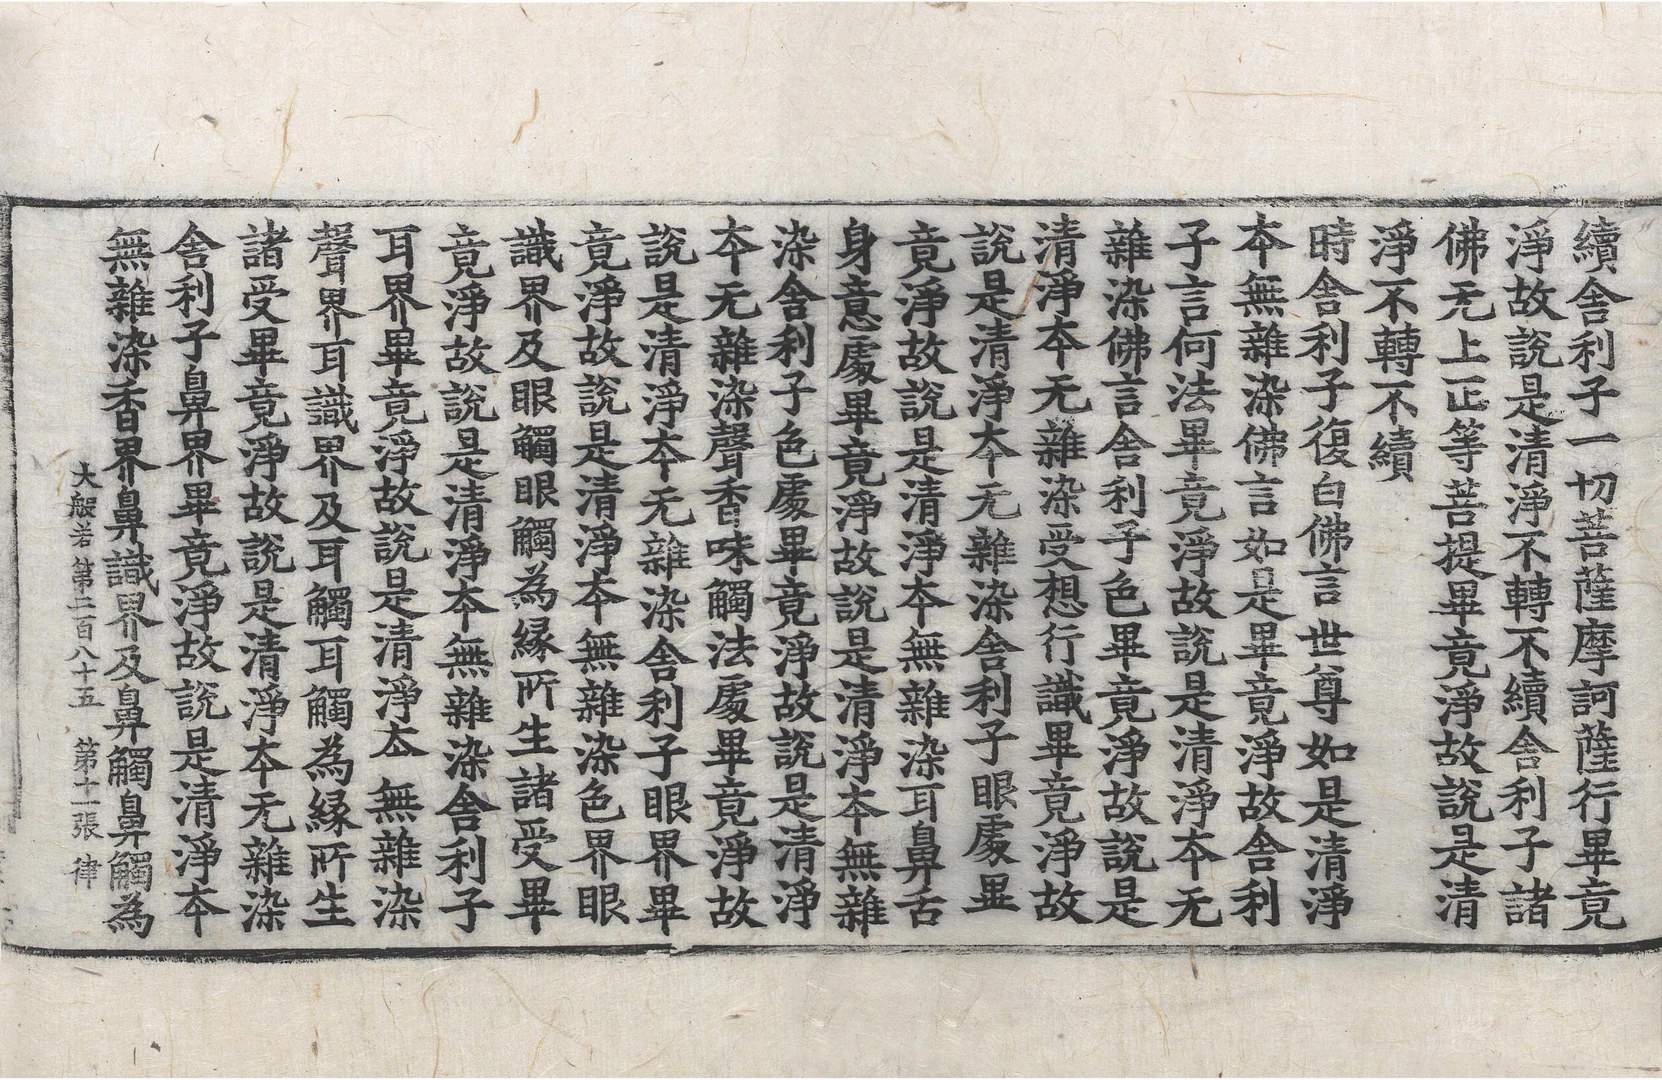 續舍利子一切菩薩摩訶薩行畢竟
淨故說是清淨不轉不續舍利子諸
佛无上正等菩提畢竟淨故說是清
淨不轉不續
時舍利子復白佛言世尊如是清淨
本無雜染佛言如是畢竟淨故舍利
子言何法畢竟淨故說是清淨本无
雜染佛言舍利子色畢竟淨故說是
清淨本无雜染受想行識畢竟淨故
說是清淨本无雜染舍利子眼處畢
竟淨故說是清淨本無雜染耳鼻舌
身意處畢竟淨故說是清淨本無雜
染舍利子色處畢竟淨故說是清淨
本无雜染聲香味觸法處畢竟淨故
說是清淨本无雜染舍利子眼界畢
竟淨故說是清淨本無雜染色界眼
識界及眼觸眼觸為緣所生諸受畢
竟淨故說是清淨本無雜染舍利子
耳界畢竟淨故說是清淨本無雜染
聲界耳識界及耳觸耳觸為緣所生
諸受畢竟淨故說是清淨本无雜染
舍利子鼻界畢竟淨故說是清淨本
無雜染香界鼻識界及鼻觸鼻觸為
大般若第二百八十五 第十一張 律